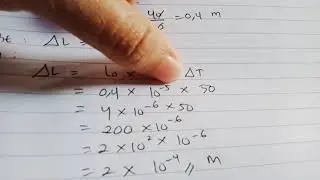 40/ = 0,4 m
: ΔL =
ΔL = l₀ × ΔT
= 0,4 × 10⁻⁵ × 50
= 4 × 10⁻⁶ × 50
= 200 × 10⁻⁶
= 2 × 10² × 10⁻⁶
= 2 × 10⁻⁴ // M